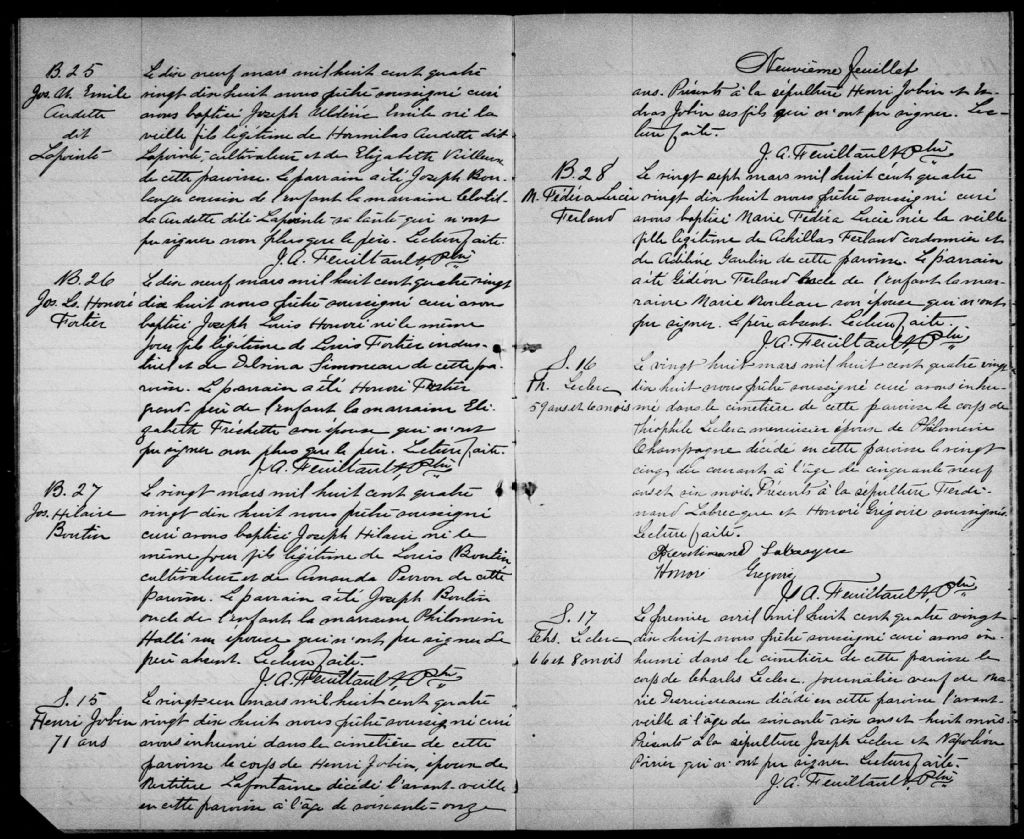 B. 25
Jos. Ald. Emile
Audette
dit
Lapointe
Le dix neuf mars mil huit cent quatre
vingt dix huit nous prêtre soussigné curé
avons baptisé Joseph Aldéric Emile né la
veille fils légitime de Hormilas Audette dit
Lapointe, cultivateur et de Elizabeth Veilleux
de cette paroisse. Le parrain a été Joseph Bou-
langer cousin de l'enfant la marraine Clotil-
da Audette dite Lapointe sa tante qui n'ont
pu signer non plus que le père. Lecture faite.
J. A. Feuiltault, Ptre
B. 26
Jos. Ls. Honoré
Fortier
Le dix neuf mars mil huit cent quatre vingt
dix huit nous prêtre soussigné curé avons
baptisé Joseph Louis Honoré né le même
jour fils légitime de Louis Fortier indus-
triel et de Delvina Simoneau de cette pa-
roisse. Le parrain a été Honoré Fortier
grand-père de l'enfant la marraine Eli-
zabeth Fréchette son épouse qui n'ont
pu signer non plus que le père. Lecture faite.
J. A. Feuiltault, Ptre
B. 27
Jos. Hilaire
Boutin
Le vingt mars mil huit cent quatre
vingt dix huit nous prêtre soussigné
curé avons baptisé Joseph Hilaire né le
même jour fils légitime de Louis Boutin
cultivateur et de Amanda Perron de cette
paroisse. Le parrain a été Joseph Boutin
oncle de l'enfant la marraine Philomène
Hallé son épouse qui n'ont pu signer Le
père absent. Lecture faite.
J. A. Feuiltault, Ptre
S. 15
Henri Jobin
71 ans
Le vingt-un mars mil huit cent quatre
vingt dix huit nous prêtre soussigné curé
avons inhumé dans le cimetière de cette
paroisse le corps de Henri Jobin, époux de
Lafontaine décédé l'avant-veille
en cette paroisse à l'âge de soixante-onze
Neuvième feuillet
ans. Présents à la sépulture Henri Jobin et An-
dras Jobin ses fils qui n'ont pu signer. Lec-
ture faite.
J. A. Feuiltault, Ptre
B. 28
M. Fédéra Lucie
Ferland
Le vingt sept mars mil huit cent quatre
vingt dix huit nous prêtre soussigné curé
avons baptisé Marie Fédéra Lucie née la veille
fille légitime de Achillas Ferland cordonnier et
de Adéline Gaulin de cette paroisse. Le parrain
a été Gédéon Ferland oncle de l'enfant la mar-
raine Marie Rouleau son épouse qui n'ont
pu signer. Le père absent. Lecture faite.
J. A. Feuiltault, Ptre
S. 16
Th. Leclerc
59 ans et 6 mois
Le vingt huit mars mil huit cent quatre vingt
dix huit nous prêtre soussigné curé avons inhu-
mé dans le cimetière de cette paroisse le corps de
Théophile Leclerc, menuisier époux de Philomène
Champagne décédé en cette paroisse le vingt
cinq du courant à l'âge de cinquante-neuf
ans et six mois. Présents à la sépulture Ferdi-
nand Labrecque et Honoré Grégoire soussignés.
Lecture faite.
Ferdinand Labrecque
Honoré Grégoire
J. A. Feuiltault, Ptre
S. 17
Chs. Leclerc
66 et 8 mois
Le premier avril mil huit cent quatre vingt
dix huit nous prêtre soussigné curé avons in-
humé dans le cimetière de cette paroisse le
corps de Charles Leclerc, journalier veuf de Ma-
rie Desruisseaux décédé en cette paroisse l'avant-
veille à l'âge de soixante six ans et huit mois.
Présents à la sépulture Joseph Leclerc et Napoléon
Poirier qui n'ont pu signer Lecture faite.
J. A. Feuiltault, Ptre